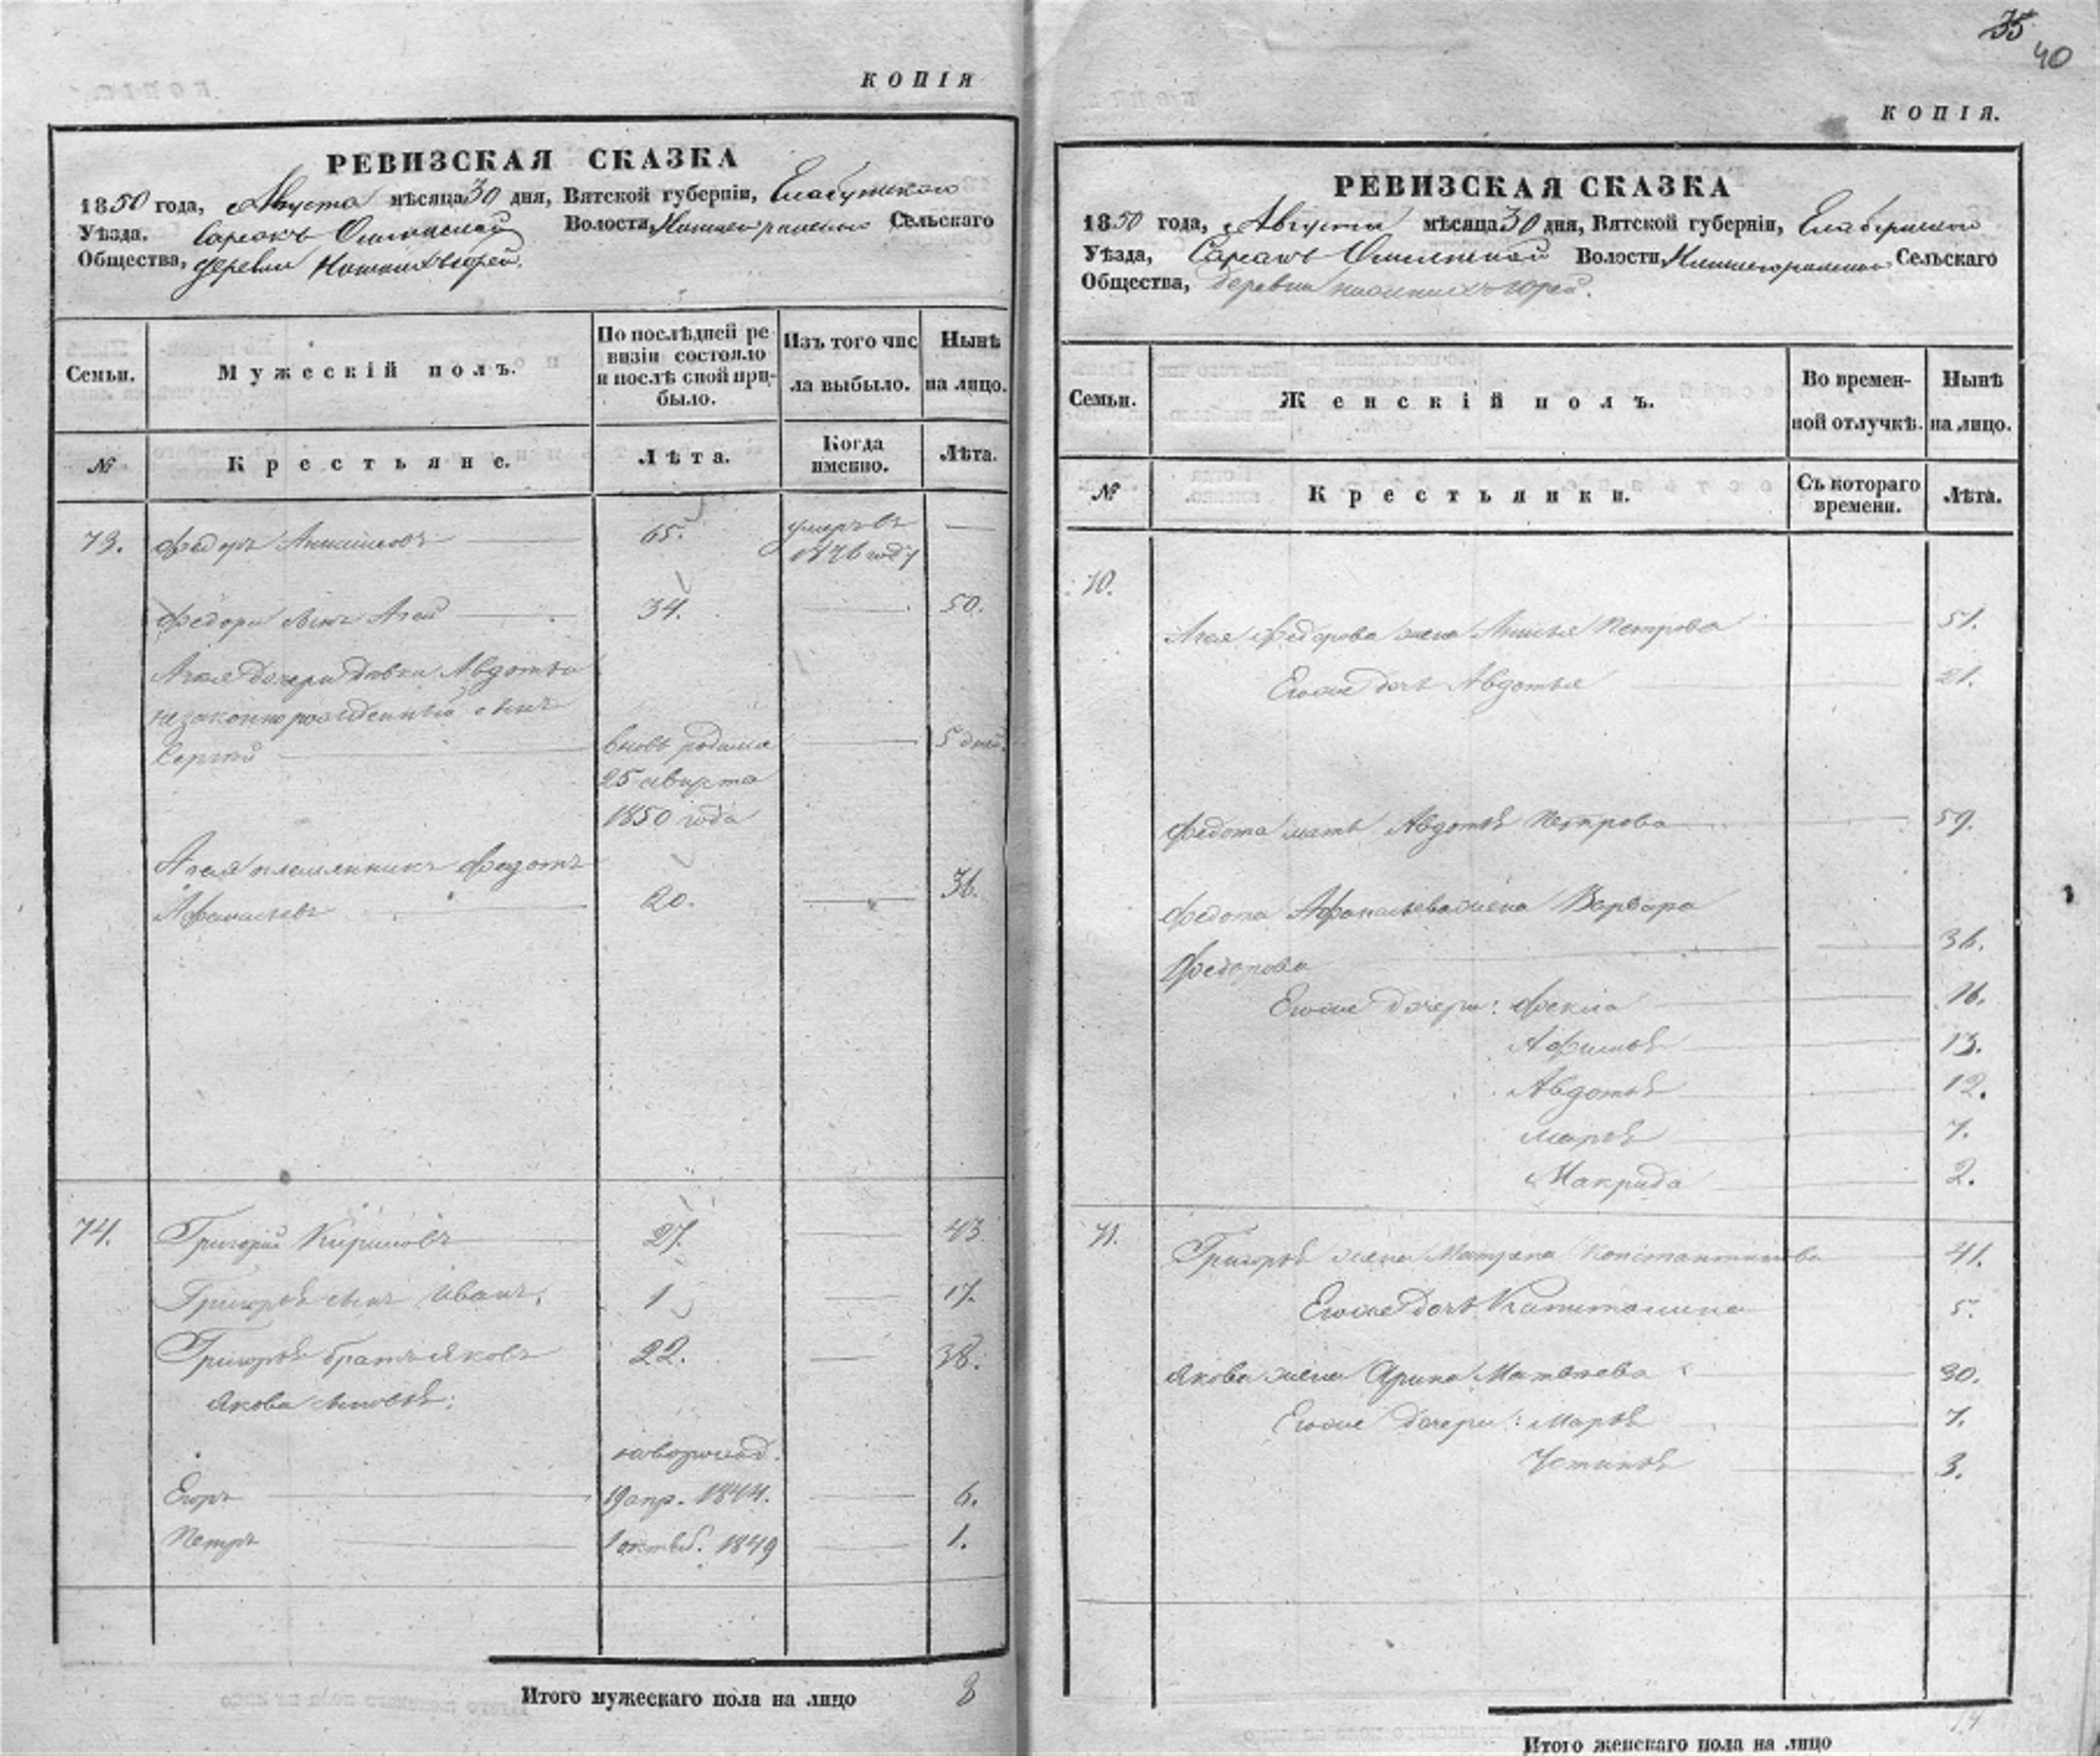 КОПІЯ
РЕВИЗСКАЯ СКАЗКА
1850 года, Августа мѣсяца 30 дня, Вятской губерніи, Елабужскаго
Уѣзда. Сарсакъ Омгинской Волости, Сельскаго
Общества, деревни
Семьи.
Мужескій полъ.
По послѣдней ре
визіи состояло
и послѣ сной при-
было.
Изъ того чис
ла выбыло.
Нынѣ
на лицо.
№
Крестьяне.
Лѣта.
Когда
именно.
Лѣта.
73. Федоръ 65. умеръ въ —
году
Федора сынъ Агей 34. 50.
Агея дочери девки Авдотьи
незаконнорожденный сынъ
Сергей вновь родился 5 дней.
25 августа
1850 года
Агея племянникъ Федотъ
Афанасьевъ 20. 36.
74. Григорій Кириловъ 27. 43.
Григорья сынъ Иванъ. 1 17.
Григорья братъ Яковъ 22. 38.
Якова сыновья:
новорожд.
Егоръ 19 апр. 1844. 6.
Петръ 1 октяб. 1849 1.
Итого мужескаго пола на лицо 8
35
40
КОПІЯ.
РЕВИЗСКАЯ СКАЗКА
1850 года, Августа мѣсяца 30 дня, Вятской губерніи, Елабужскаго
Уѣзда, Сарсакъ Омгинской Волости, Сельскаго
Общества, деревни
Семьи.
Женскій полъ.
Во времен-
ной отлучкѣ.
Нынѣ
на лицо.
№
Крестьянки.
Съ котораго
времени.
Лѣта.
70.
Агея Федорова жена Анисья Петрова 51.
Егоже дочь Авдотья 21.
Федота мать Авдотья Петрова 59.
Федота Афанасьева жена Варвара
Федотова 36.
Егоже дочери: Фекла 16.
Афимья 13.
Авдотья 12.
Марья 7.
Макрида 2.
71. Григорья жена Матрена Константинова 41.
Егоже дочь Капитолина 5.
Якова жена Арина Матвѣева 30.
Егоже дочери: Марья 7.
Устинья 3.
Итого женскаго пола на лицо